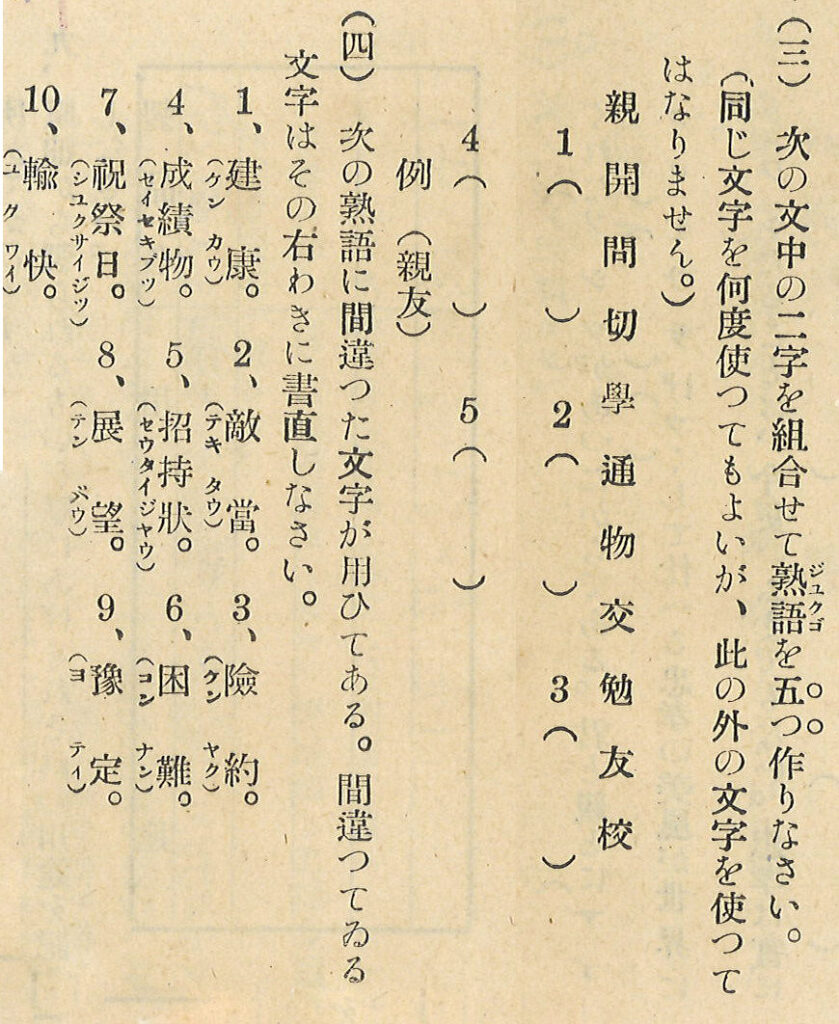 ジユクゴ
(三) 次の文中の二字を組合せて熟語を五つ作りなさい。
(同じ文字を何度使つてもよいが、此の外の文字を使つて
はなりません。)
親 開 問 切 學 通 物 交 勉 友 校
1( ) 2( ) 3( )
4( ) 5( )
例 (親友)
(四) 次の熟語に間違つた文字が用ひてある。間違つてゐる
文字はその右わきに書直しなさい。
1、建康。 2、敵當。 3、險約。
(ケンカウ) (テキタウ) (ケンヤク)
4、成績物。 5、招持狀。 6、困難。
(セイセキブツ) (セウタイジヤウ) (コンナン)
7、祝祭日。 8、展望。 9、豫定。
(シユクサイジツ) (テンバウ) (ヨテイ)
10、輸快。
(ユクワイ)